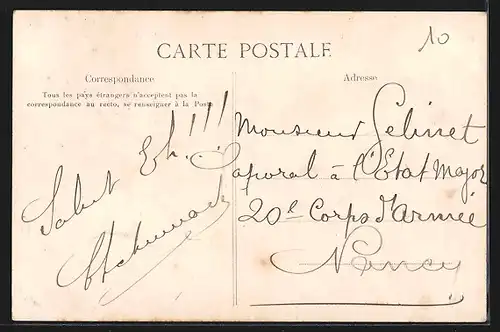 10
CARTE POSTALE
Correspondance
Tous les pays étrangers n'acceptent pas la
correspondance au recto, se renseigner à la Poste
Salut Eh...!!!
Adresse
Monsieur Gelinet
Caporal à l'Etat Major
20e Corps d'armée
Nancy